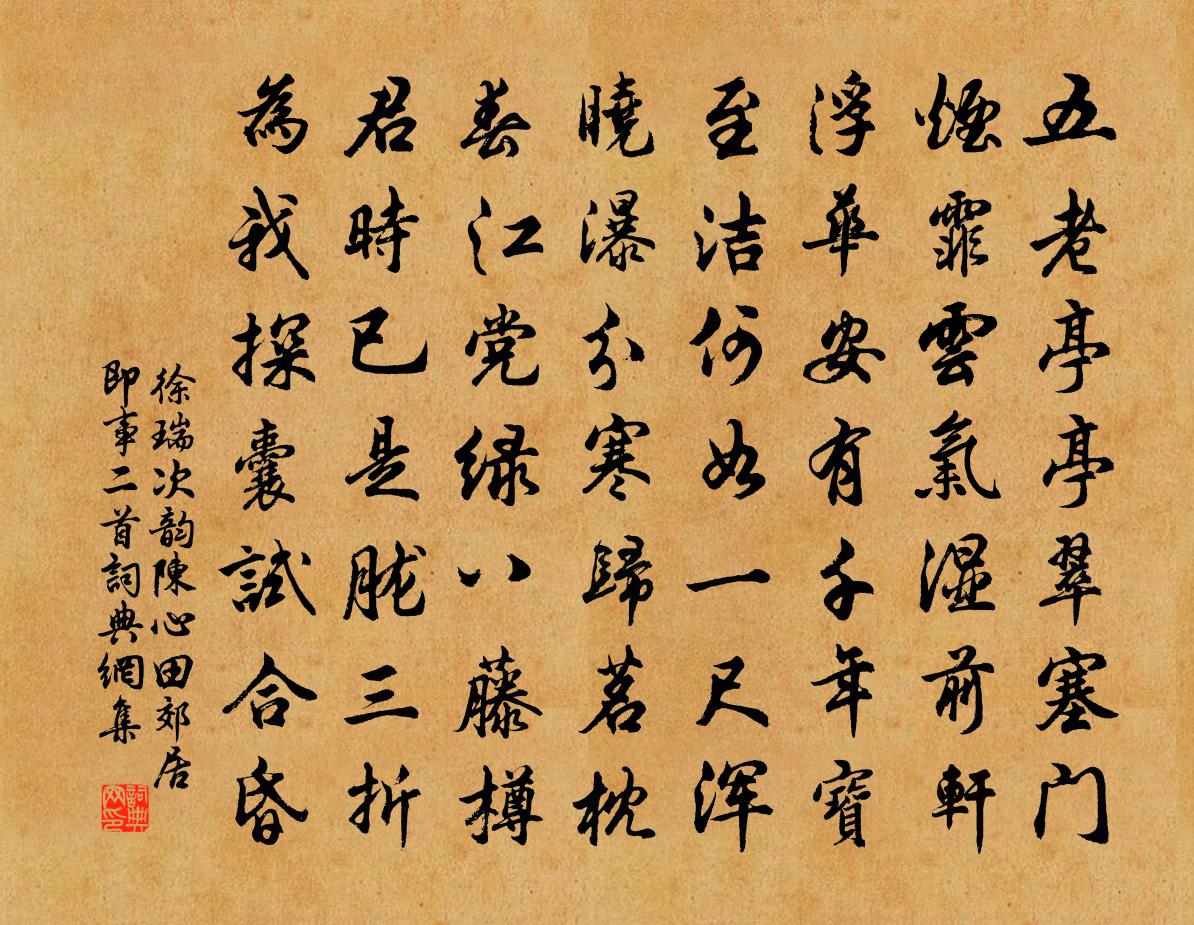 五老亭亭翠塞门
煙霏雲氣湿前軒
浮華安有千年寶
至洁何如一尺浑
曉瀑分寒歸茗枕
春江党绿入藤樽
君時已是肱三折
為我探囊試合昏
徐瑞次韵陳心田郊居
即事二首詞典網集
詞典网印